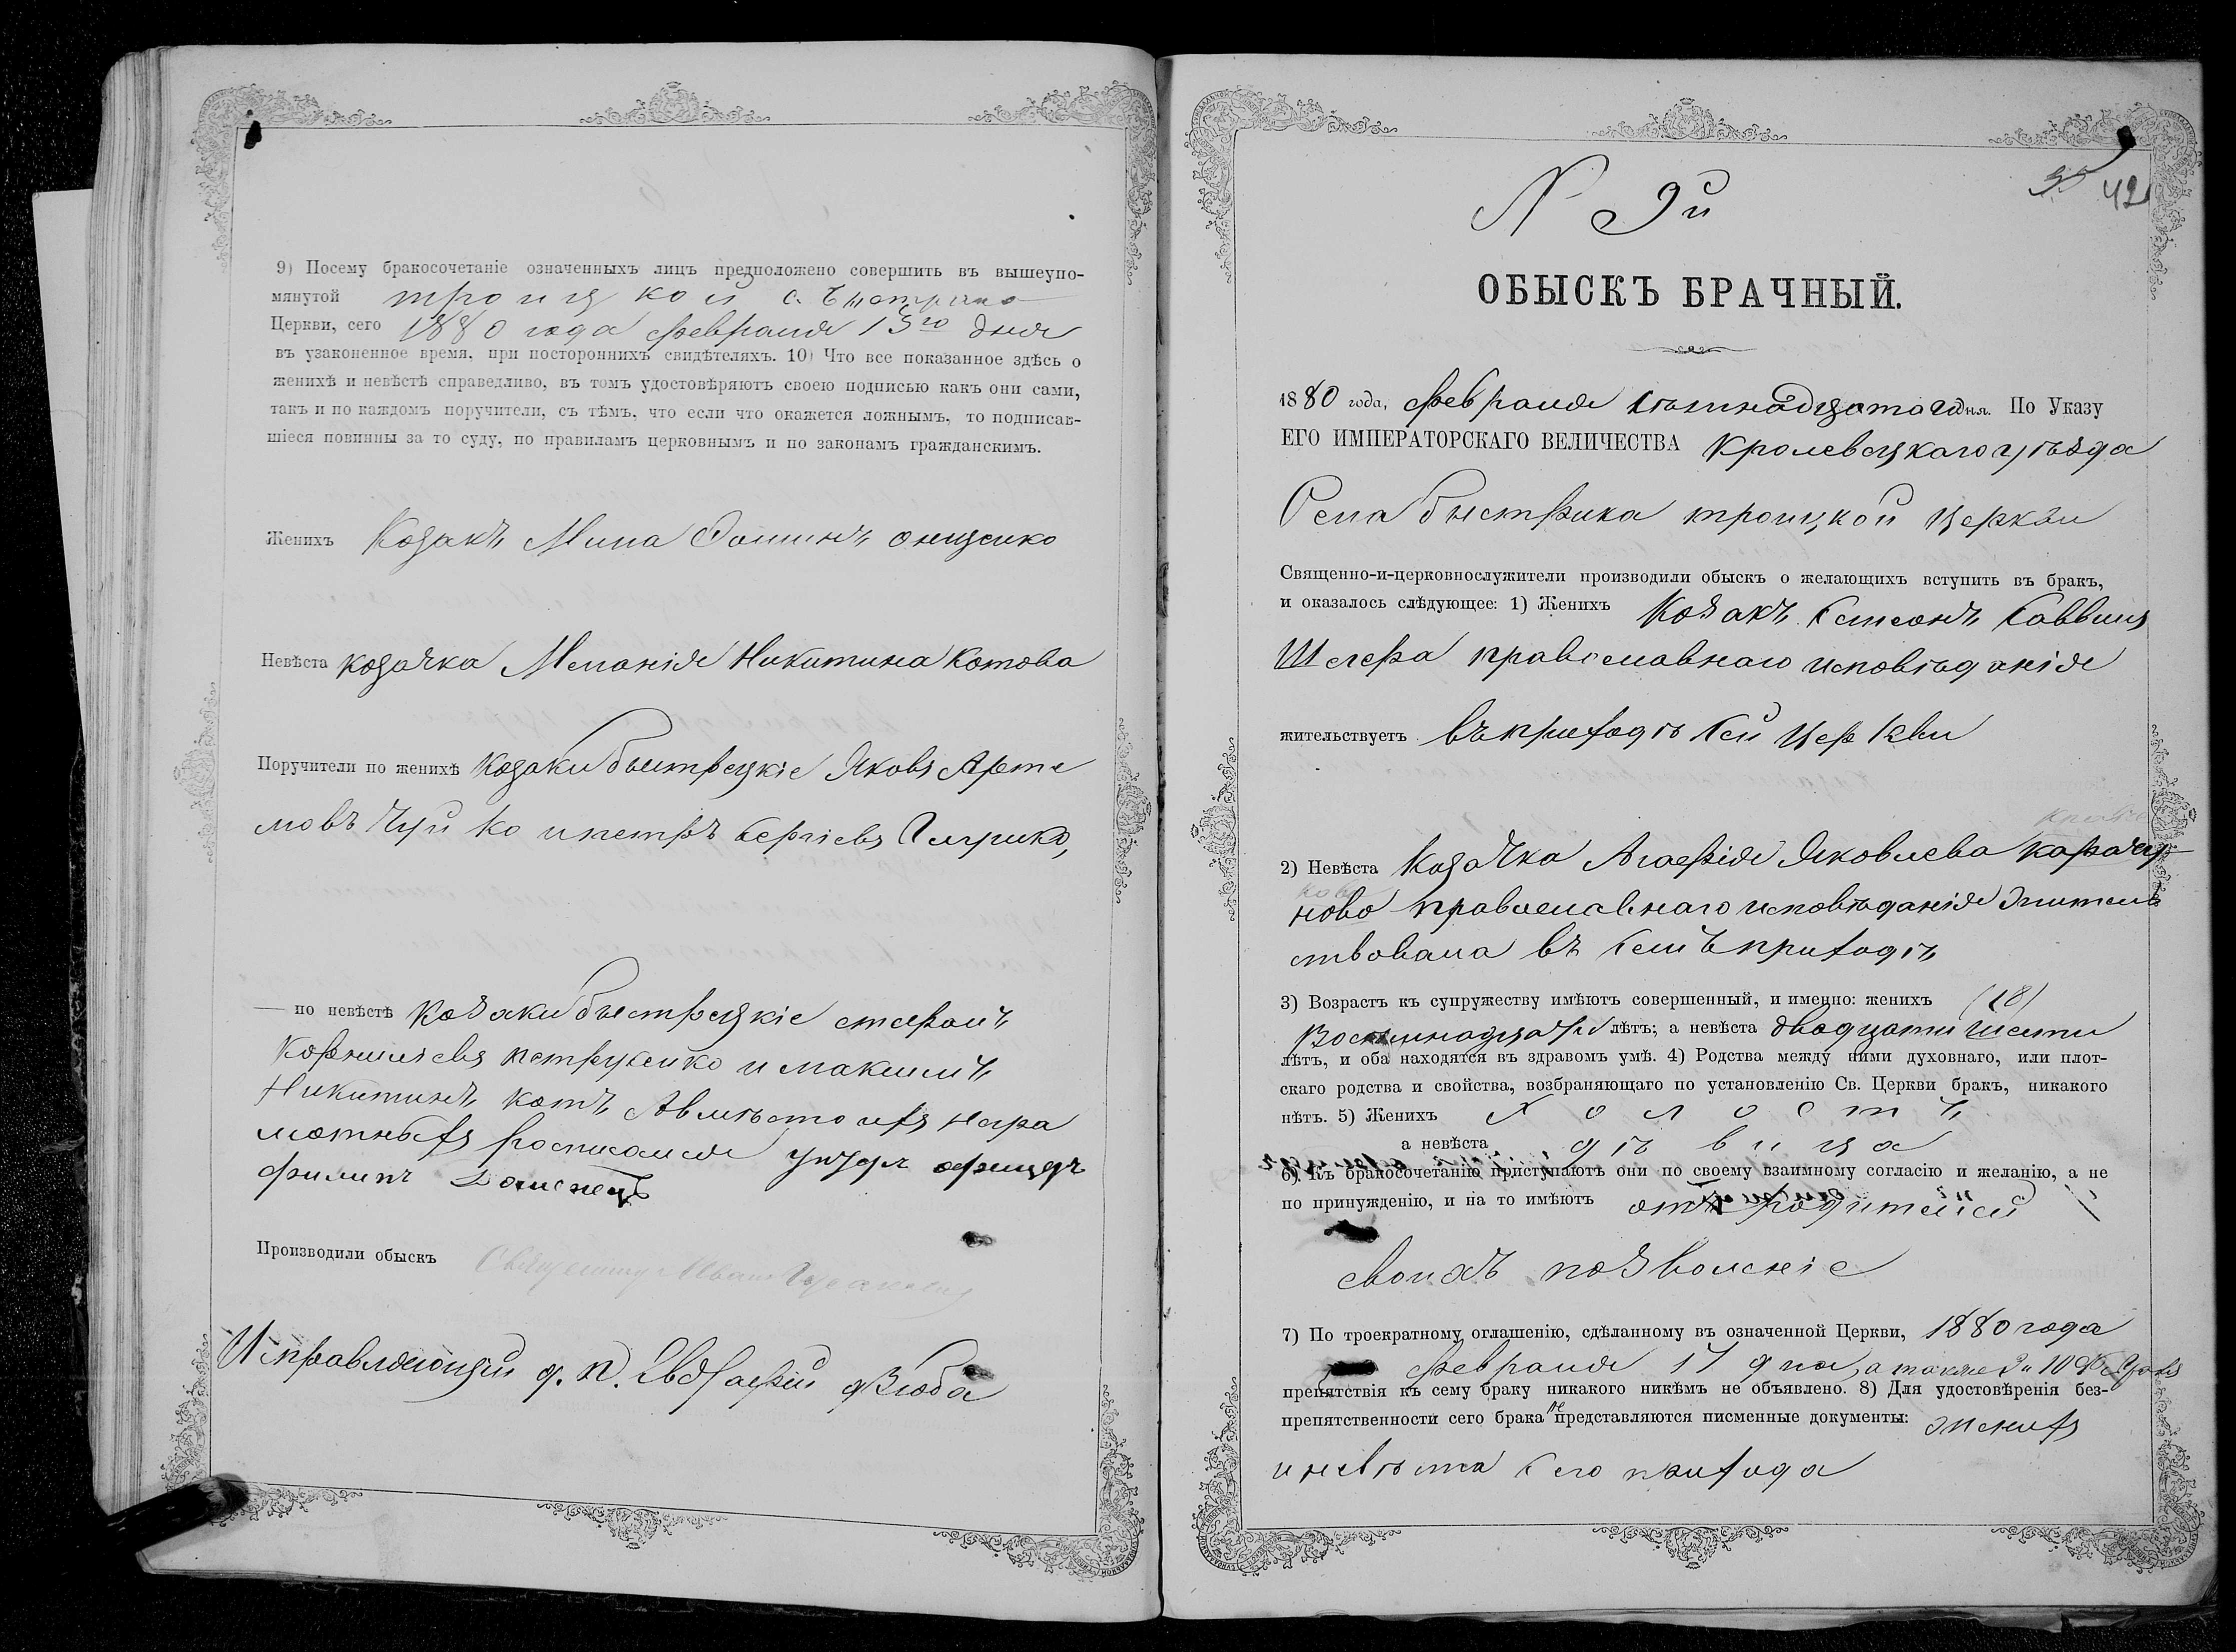 9) Посему бракосочетаніе означенныхъ лицъ предположено совершить въ вышеупо-
мянутой троицкой с. Быстрика
Церкви, сего 1880 года февраля 13го дня
въ узаконенное время, при постороннихъ свидѣтеляхъ. 10) Что все показанное здѣсь о
женихѣ и невѣстѣ справедливо, въ томъ удостовѣряютъ своею подписью какъ они сами,
такъ и по каждомъ поручители, съ тѣмъ, что если что окажется ложнымъ, то подписав-
шіеся повинны за то суду, по правиламъ церковнымъ и по законамъ гражданскимъ.
Женихъ Козакъ Мина Онищенко
Невѣста козачка Меланія Никитина Котова
Поручители по женихѣ козаки быстрецкіе Яковъ Арте
мовъ Чуйко и петръ Сергіевъ
по невѣстѣ козаки быстрецкіе стефанъ
Корниліевъ петрусенко и максимъ
Никитинъ котъ А вмѣсто ихъ негра
мотныхъ росписался унтеръ офицеръ
филипъ
Производили обыскъ Священникъ Иванъ
Исправляющій д. п. Евстафій дзюба
35 42
N 9й
ОБЫСКЪ БРАЧНЫЙ.
1880 года, февраля семнадцатаго дня. По Указу
ЕГО ИМПЕРАТОРСКАГО ВЕЛИЧЕСТВА Кролевецкаго уѣзда
Села быстрика троицкой церкви
Священно-и-церковнослужители производили обыскъ о желающихъ вступить въ бракъ,
и оказалось слѣдующее: 1) Женихъ Козакъ Симеонъ Саввинъ
православнаго исповѣданія
жительствуетъ въ приходѣ сей церкви
2) Невѣста Козачка Агафія Яковлева
православнаго исповѣданія жительс
ствовала въ семъ приходѣ
3) Возрастъ къ супружеству имѣютъ совершенный, и именно: женихъ (18)
Восемнадцати лѣтъ; а невѣста двадцати шести
лѣтъ, и оба находятся въ здравомъ умѣ. 4) Родства между ними духовнаго, или плот-
скаго родства и свойства, возбраняющаго по установленію Св. Церкви бракъ, никакого
нѣтъ. 5) Женихъ Холостъ
а невѣста дѣвица
6) Къ бракосочетанію приступаютъ они по своему взаимному согласію и желанію, а не
по принужденію, и на то имѣютъ отъ родителей
своихъ позволеніе
7) По троекратному оглашенію, сдѣланному въ означенной Церкви, 1880 года
февраля 17 дня, а также 2 и 10
препятствія къ сему браку никакого никѣмъ не объявлено. 8) Для удостовѣренія без-
препятственности сего брака не представляются писменные документы: женихъ
и невѣста сего прихода